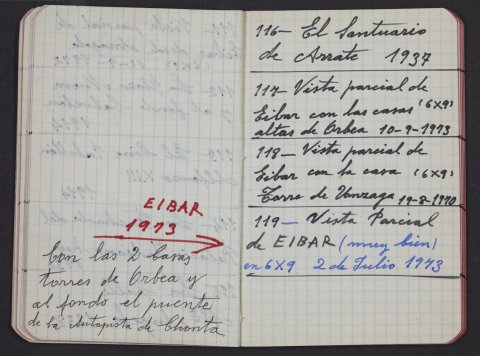 EIBAR
1973
Con las 2 casas
torres de Orbea y
al fondo el puente
de la Autopista de Chonta
116— El Santuario
de Arrate 1937
117— Vista parcial de
Eibar con las casas (6X9)
altas de Orbea 10-9-1973
118— Vista parcial de
Eibar con la casa (6X9)
Torre de Unzaga 19-8-1970
119— Vista Parcial
de EIBAR (muy bien)
en 6X9 2 de Julio 1973